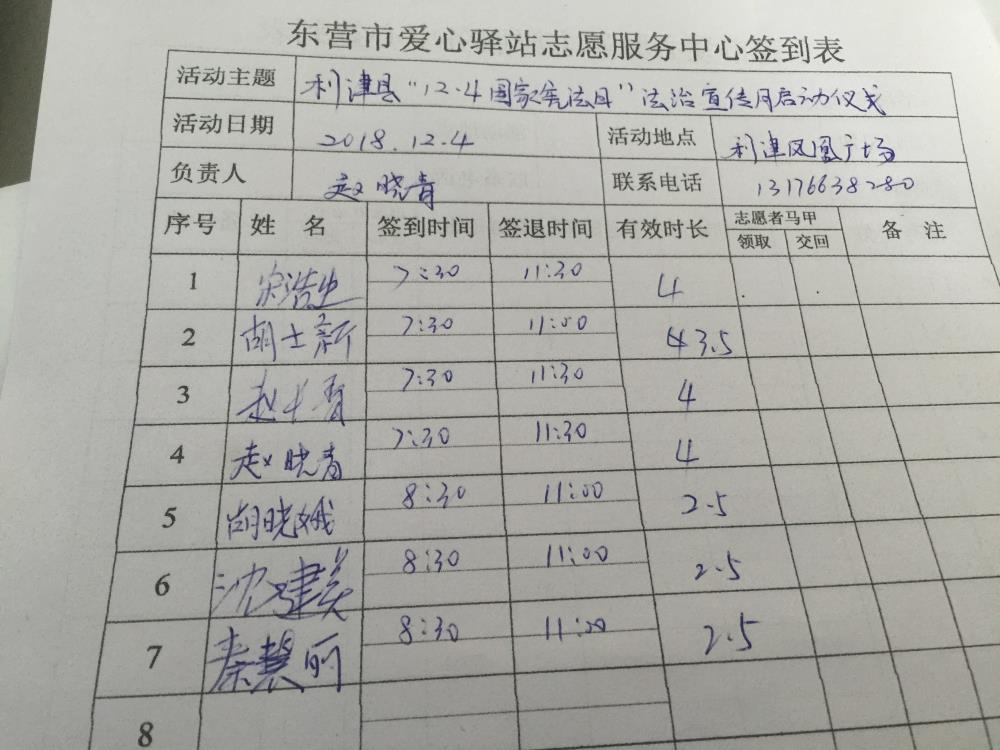 东营市爱心驿站志愿服务中心签到表
活动主题 利津县“12.4国家宪法日”法治宣传月启动仪式
活动日期 2018.12.4 活动地点 利津凤凰广场
负责人 赵晓青 联系电话 13176638280
序号 姓 名 签到时间 签退时间 有效时长 志愿者马甲 领取 交回 备 注
1 7:30 11:30 4
2 胡士新 7:30 11:00 3.5
3 7:30 11:30 4
4 赵晓青 7:30 11:30 4
5 胡晓娥 8:30 11:00 2.5
6 沈建美 8:30 11:00 2.5
7 秦慧丽 8:30 11:00 2.5
8